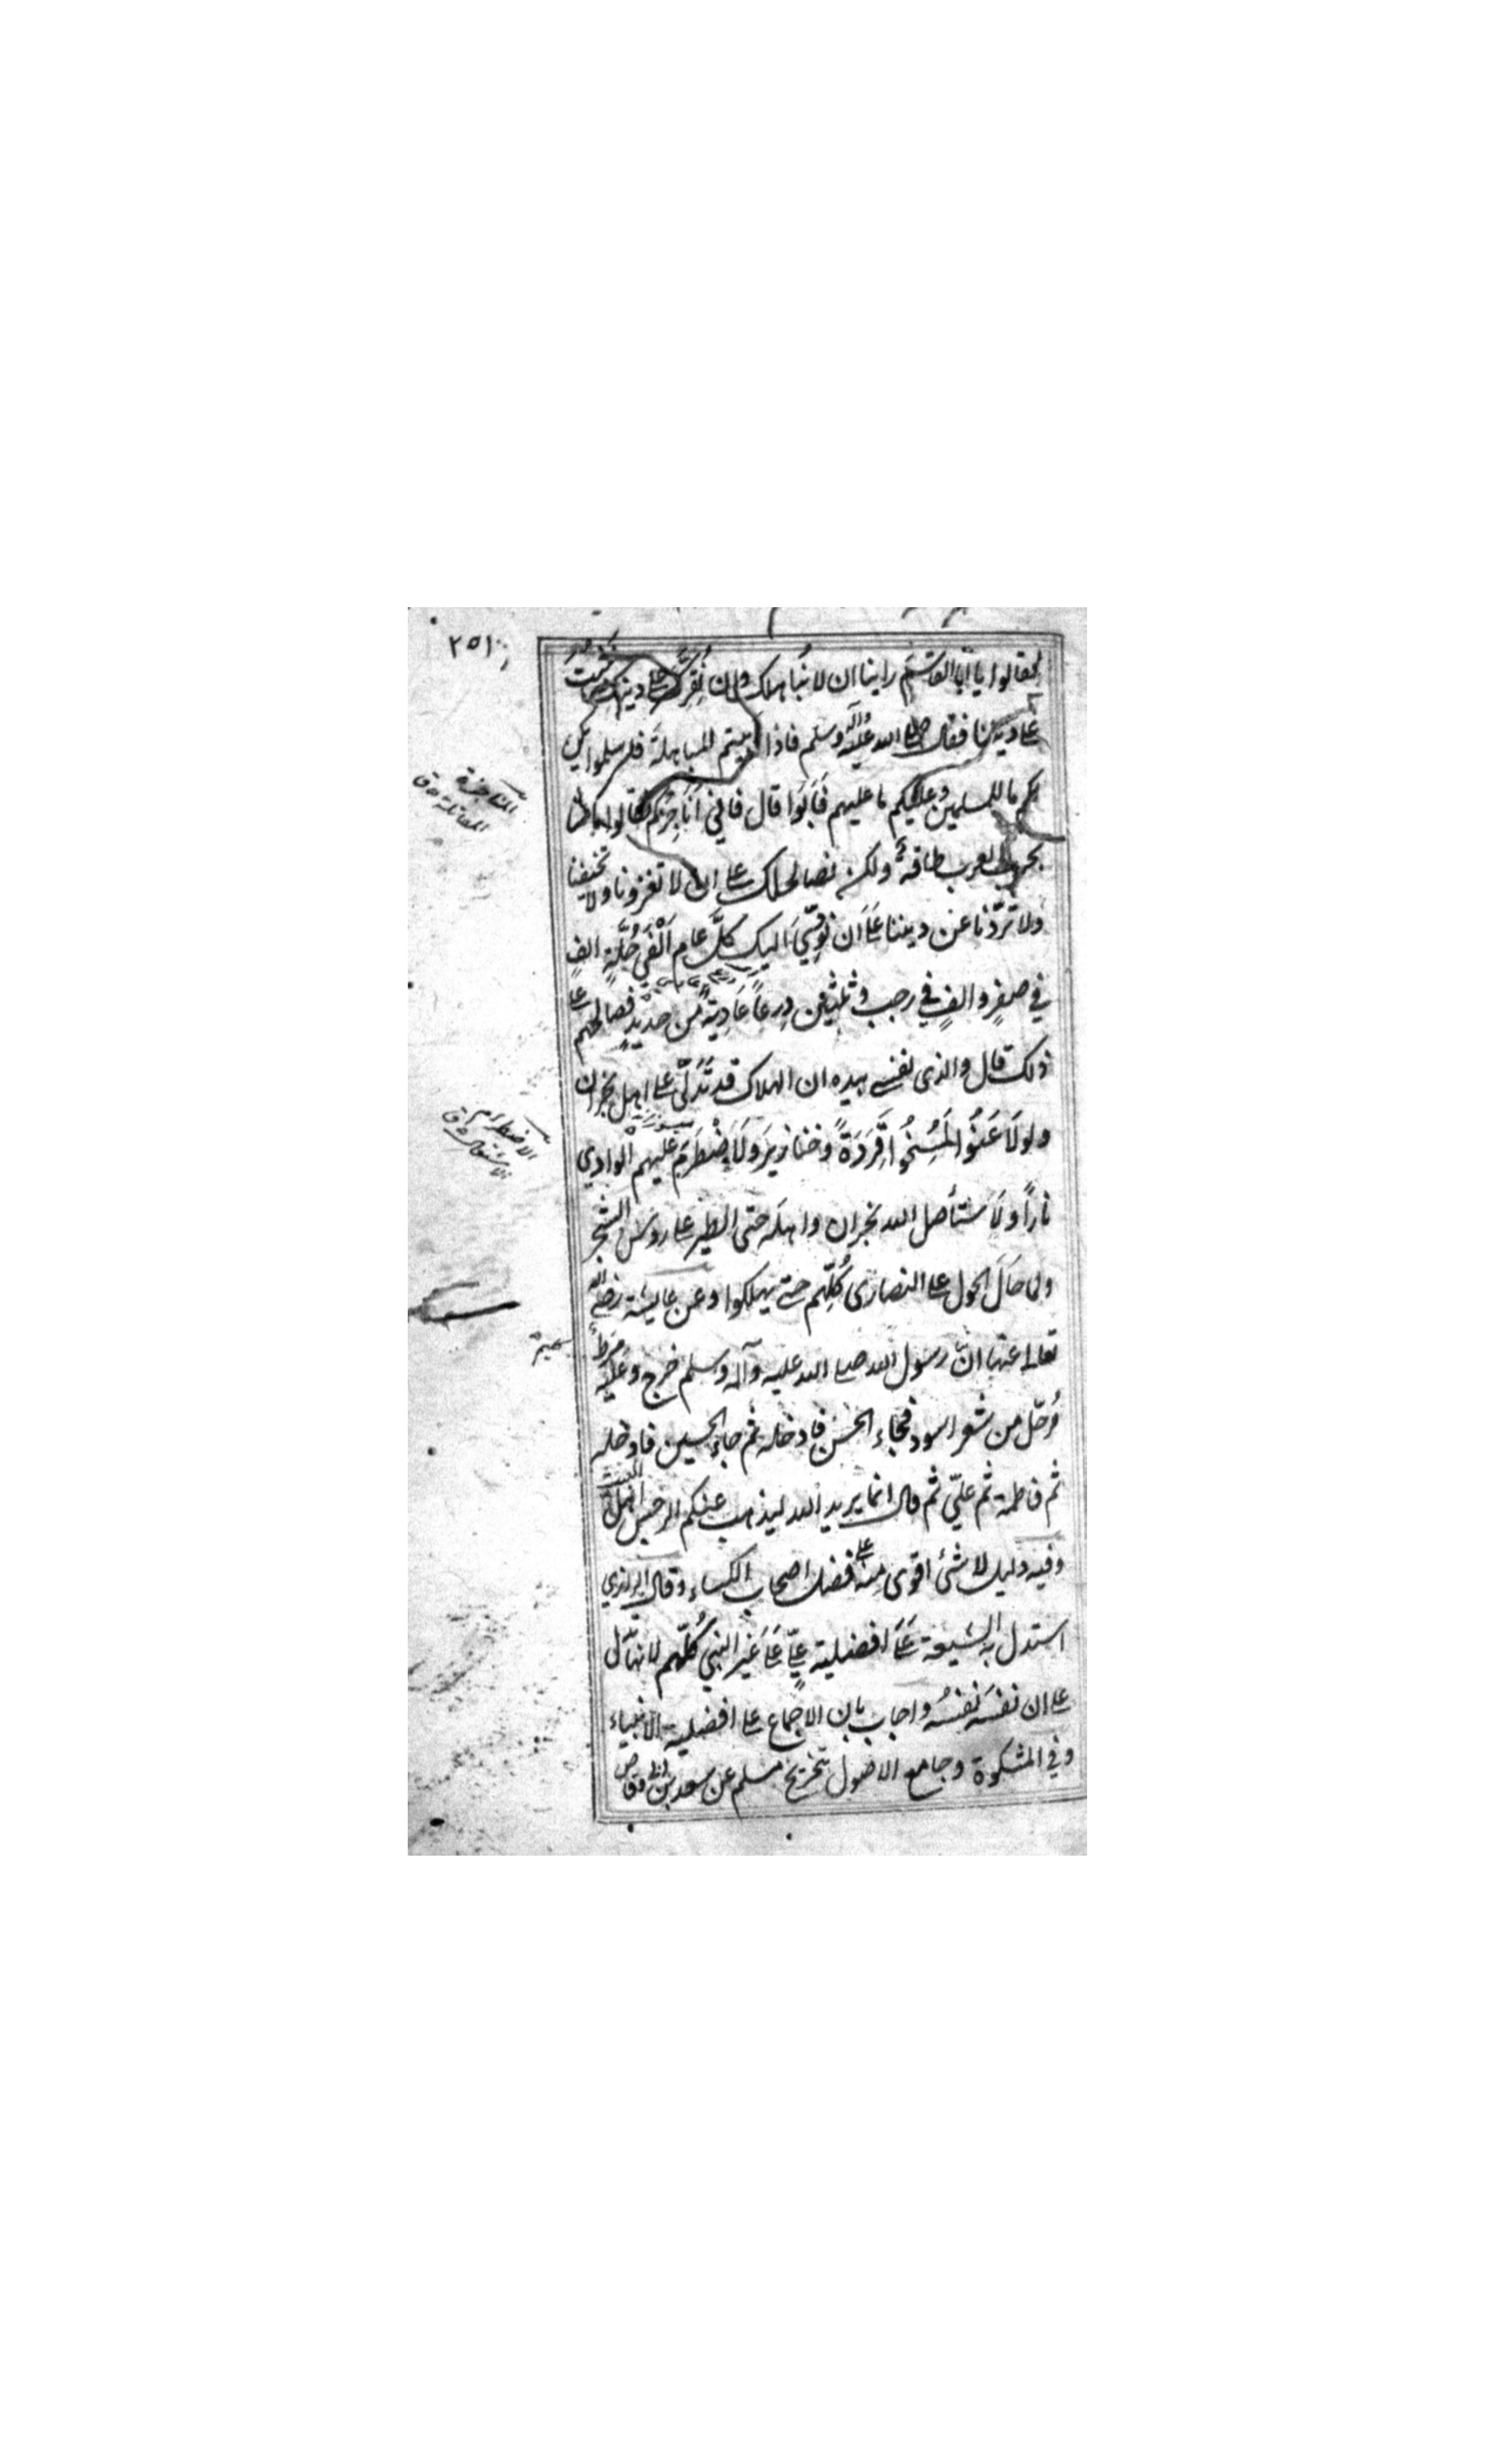 ٢٥١
فقالوا يا أبا القاسم رأينا ان لا نُباهلك وان نُقِرَّك على دينك ونثبت
على ديننا فقال صلى الله عليه وآله وسلم فاذا ابيتم المباهلة فاسلموا يكن
لكم ما للمسلمين وعليكم ما عليهم فَأَبَوا قال فاني اُنَاجِزُكم فقالوا مالنا
بحرب العرب طاقةٌ ولكن نصالحك على ان لا تغزونا ولا تخيفنا
ولا تردّنا عن ديننا عَلَى ان نؤدّيَ اليك كلَّ عام اَلْفَي حُلّةٍ الفٍ
في صفرٍ والفٍ في رجب وثلثين دِرعاً عَادِيةً من حديدٍ فصالحهم على
ذلك قال والذي نفسي بيده ان الهلاك قد تَدَلّى على اهل نجران
ولو لَاعَنُوا لَمُسِخُوا قِرَدَةً وخنازيرَ ولَاضْطَرَمَ عليهم الوادي
ناراً ولَاستأصل الله نجران واهله حتى الطير على روس الشجر
ولما حَالَ الحول على النصارى كُلِّهم حتى يهلكوا وعن عايشة رضي الله
تعالى عنها انّ رسول الله صلى الله عليه وآله وسلم خرج وعليه مِرطٌ
مُرحّل من شعر اسود فجاء الحسن فادخله ثم جاء الحسين فادخله
ثم فاطمة ثم عليّ ثم قال انما يريد الله ليذهب عنكم الرجس اهل البيت
وفيه دليل لا شئ اقوى مِنه على فضل اصحاب الكساء وقال الرازي
استدل به الشيعة عَلَى افضلية عليّ عَلَى غير النبي كلّهم لانها تدل
على ان نفسَه نفسُه واجاب بان الاجماع على افضلية الانبياء
وفي المشكوة وجامع الاصول بتخريج مسلم عن سعد بن ابي وقاص
المناجزة
المقاتلة ق
الاضطرام
الاشتعال ق